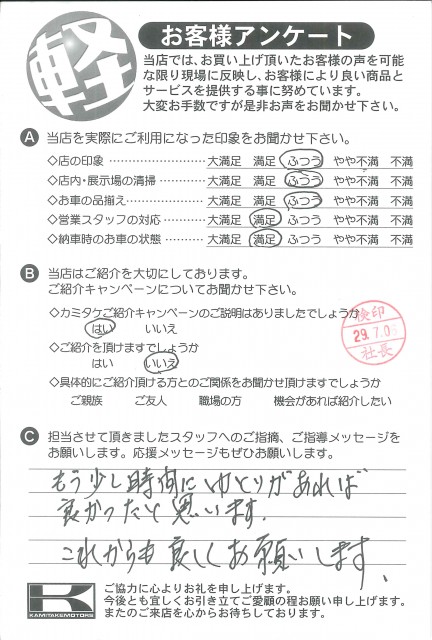 軽
お客様アンケート
当店では、お買い上げ頂いたお客様の声を可能
な限り現場に反映し、お客様により良い商品と
サービスを提供する事に努めています。
大変お手数ですが是非お声をお聞かせ下さい。
A 当店を実際にご利用になった印象をお聞かせ下さい。
◇店の印象 ………………… 大満足 満足 ふつう やや不満 不満
◇店内・展示場の清掃 ………… 大満足 満足 ふつう やや不満 不満
◇お車の品揃え ……………… 大満足 満足 ふつう やや不満 不満
◇営業スタッフの対応 ………… 大満足 満足 ふつう やや不満 不満
◇納車時のお車の状態 ………… 大満足 満足 ふつう やや不満 不満
B 当店はご紹介を大切にしております。
ご紹介キャンペーンについてお聞かせ下さい。
◇カミタケご紹介キャンペーンのご説明はありましたでしょうか
はい いいえ
◇ご紹介を頂けますでしょうか
はい いいえ
検印
29.7.06
社長
◇具体的にご紹介頂ける方とのご関係をお聞かせ頂けますでしょうか
ご親族 ご友人 職場の方 機会があれば紹介したい
C 担当させて頂きましたスタッフへのご指摘、ご指導メッセージを
お願いします。応援メッセージもぜひお願いします。
もう少し時間にゆとりがあれば
良かったと思います.
これからも良しくお願いします、
K
KAMITAKEMOTORS
ご協力に心よりお礼を申し上げます。
今後とも宜しくお引き立てご愛顧の程お願い申し上げます。
またのご来店を心からお待ちしております。